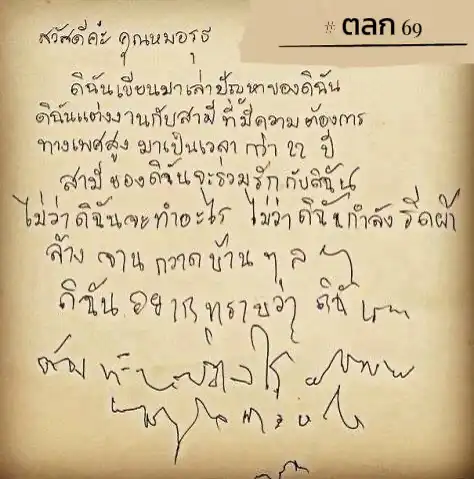 # ตลก 69
สวัสดีค่ะ คุณหมอรุธี
ดิฉันเขียนมาเล่าปัญหาของดิฉัน
ดิฉันแต่งงานกับสามี ที่มีความต้องการ
ทางเพศสูง มาเป็นเวลา กว่า 22 ปี
สามีของดิฉันจะร่วมรักกับดิฉัน
ไม่ว่าดิฉันจะทำอะไร ไม่ว่าดิฉันกำลังรีดผ้า
ล้างจาน กวาดบ้าน ฯลฯ
ดิฉันอยากทราบว่า ดิฉัน
ต้อง